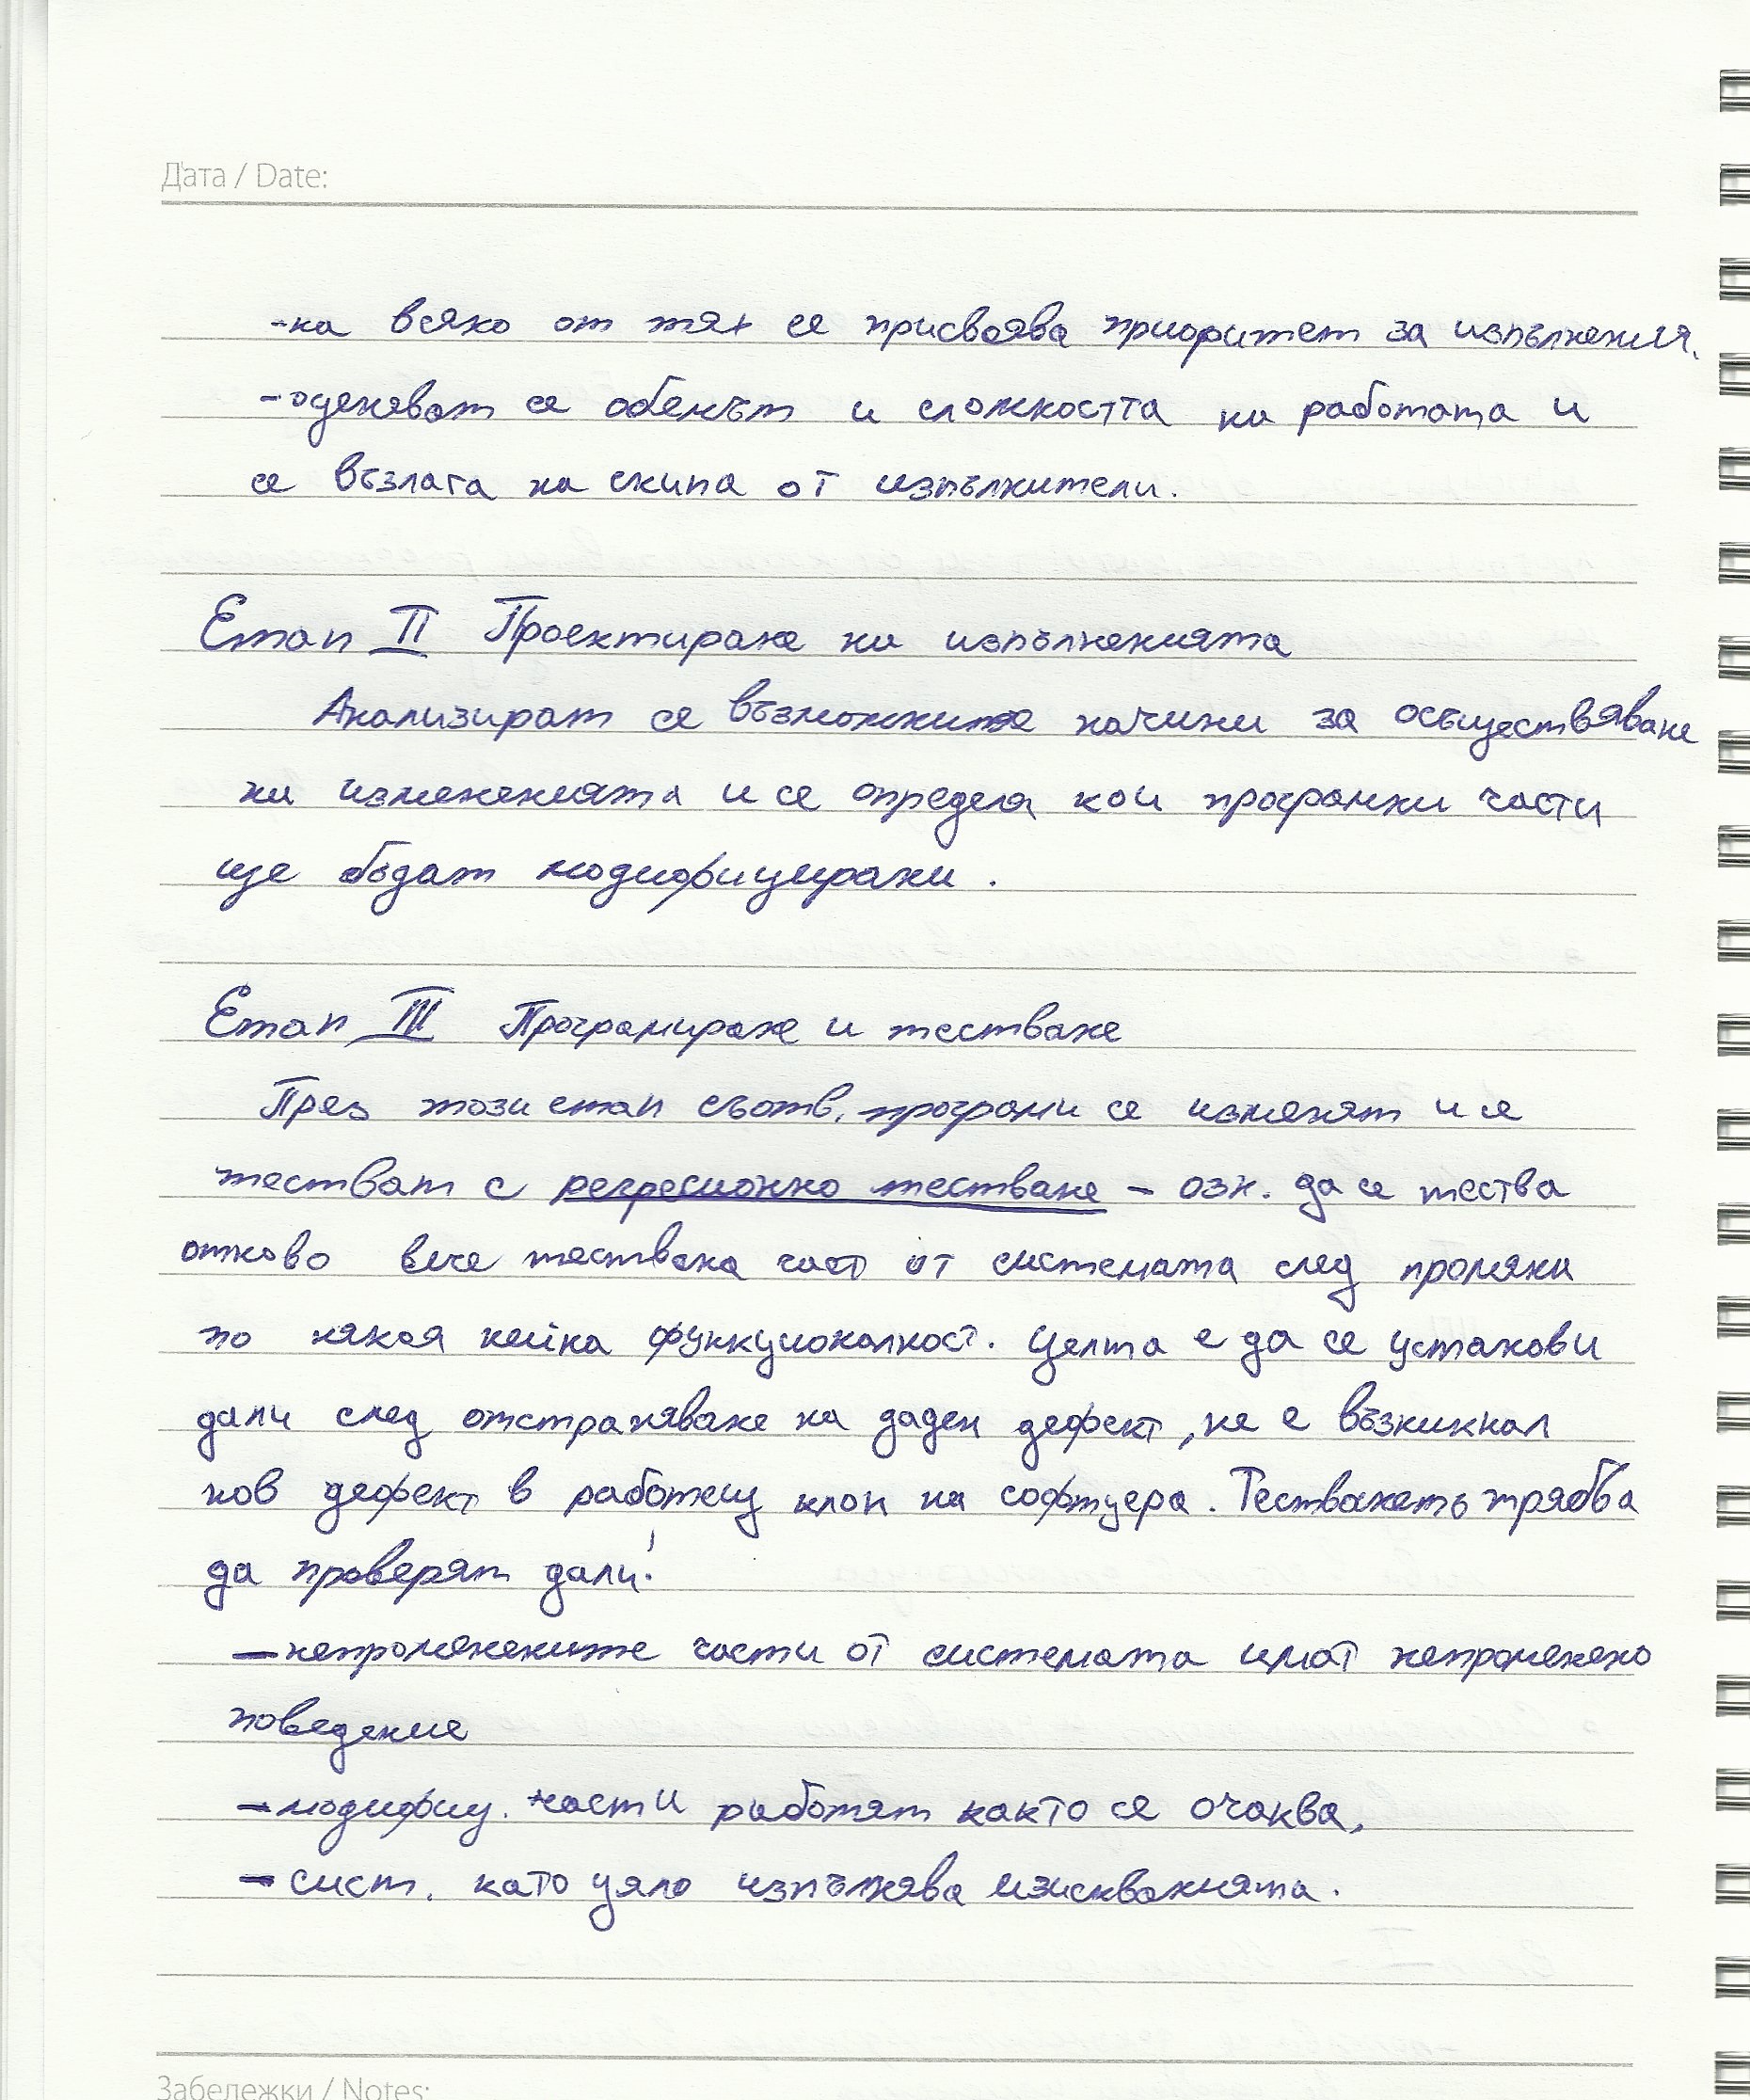 Дата / Date:
-на всяко от тях се присвоява приоритет за изпълнения.
-оценяват се обемът и сложността на работата и
се възлага на екипа от изпълнители.
Етап II Проектиране на изпълненията
Анализират се възможните начини за осъществяване
на измененията и се определя кои програмни части
ще бъдат модифицирани.
Етап III Програмиране и тестване
През този етап съотв. програми се изменят и се
тестват с регресионно тестване - озн. да се тества
отново вече тествана част от системата след промяна
по някоя нейна функционалност. Целта е да се установи
дали след отстраняване на даден дефект, не е възникнал
нов дефект в работещ клон на софтуера. Тестването трябва
да проверят дали:
- непроменените части от системата имат непроменено
поведение
- модифиц. части работят както се очаква,
- сист. като цяло изпълнява изискванията.
Забележки / Notes: